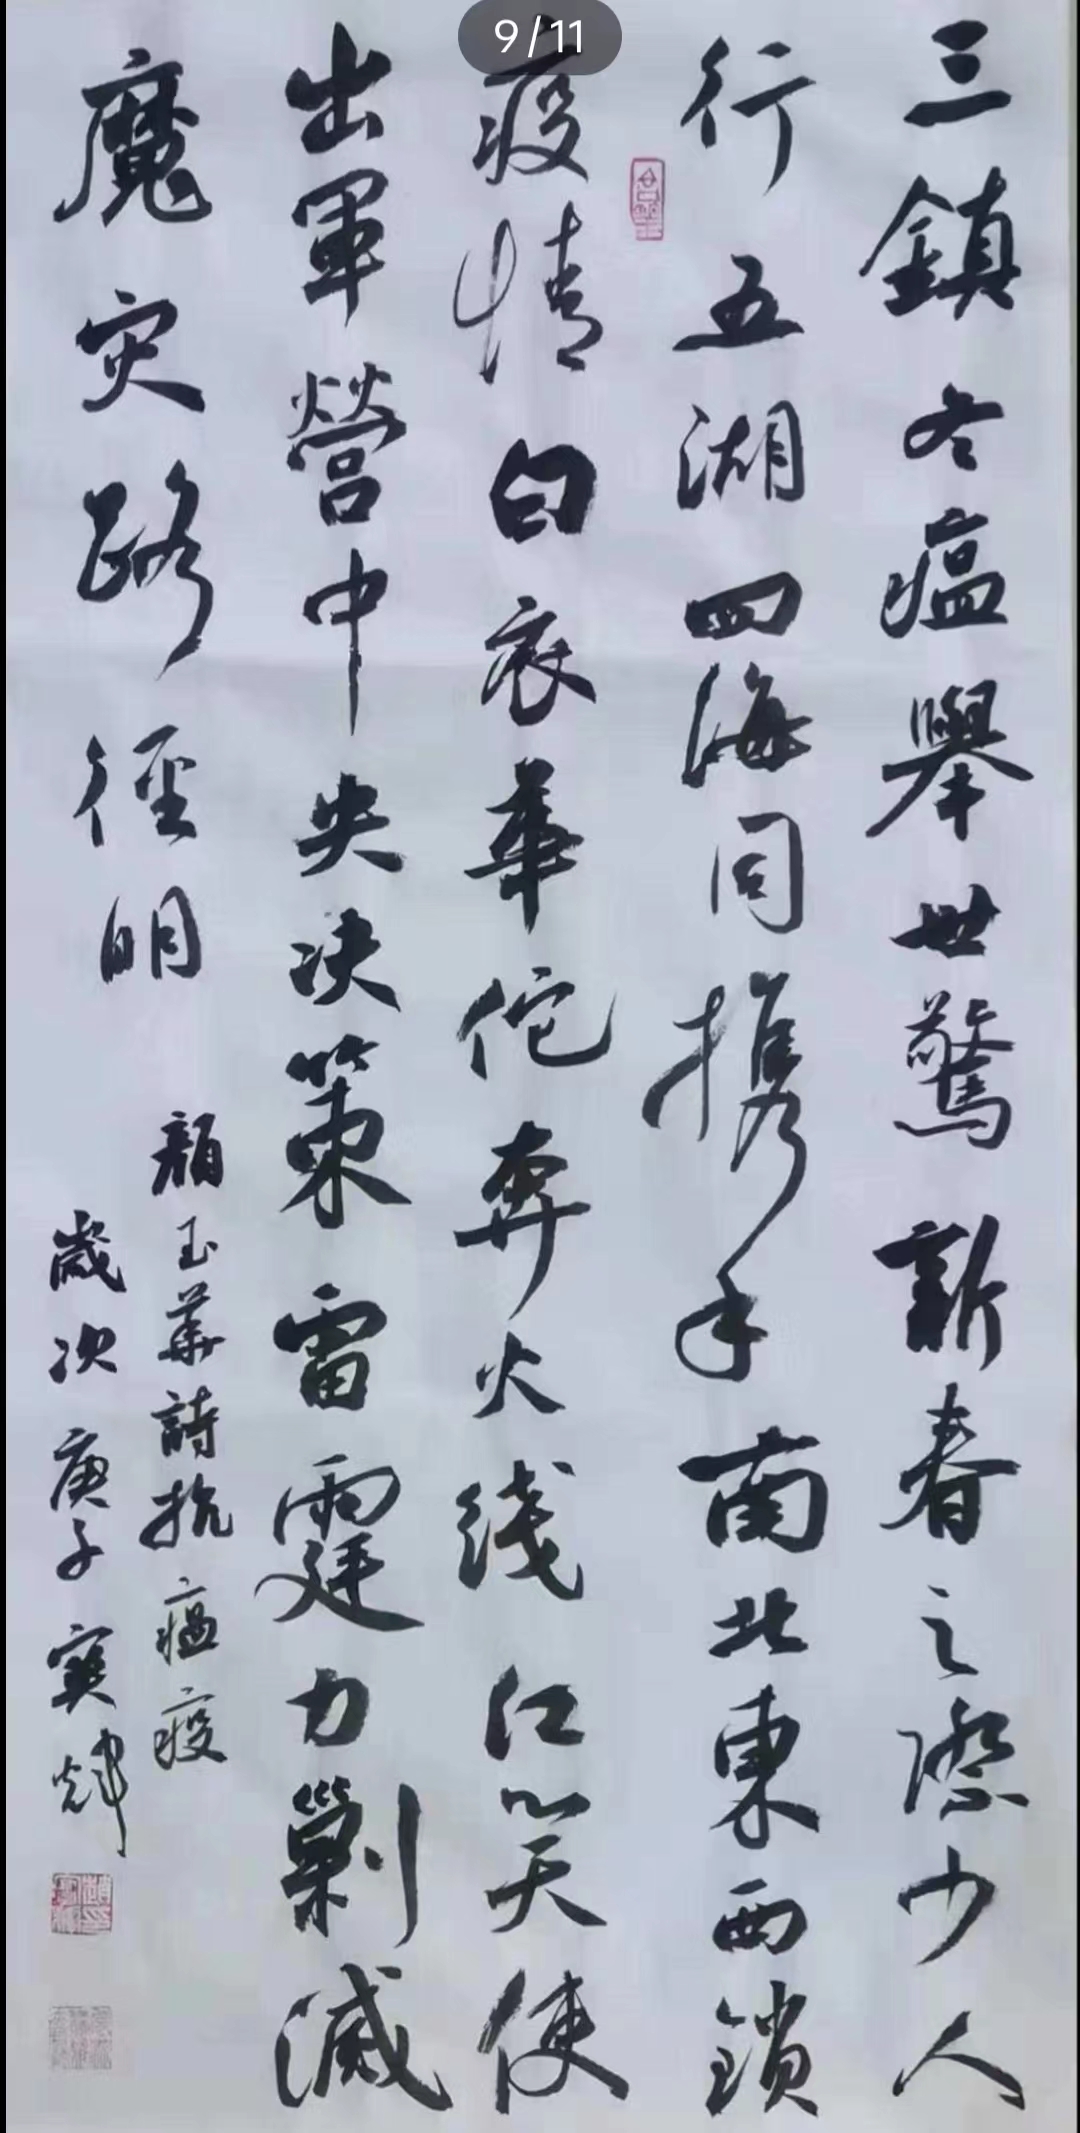 9/11
三鎮冬瘟舉世驚新春之際少人
行五湖四海同携手南北東西鎖
疫情白衣華佗奔火线仁笑天使
出軍營中央决策雷霆力剿滅
魔灾路徑明
顏玉華詩抗瘟疫
歲次庚子寶輝